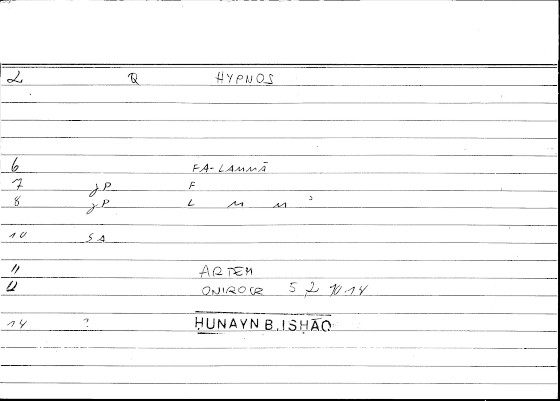 2 Q HYPNOS
6 FA-LAMMĀ
7 gP F
8 gP L M M ?
10 SA
11 ARTEM
ONIROCR 5 2 10.14
14 ? ḤUNAYN B. ISḤĀQ